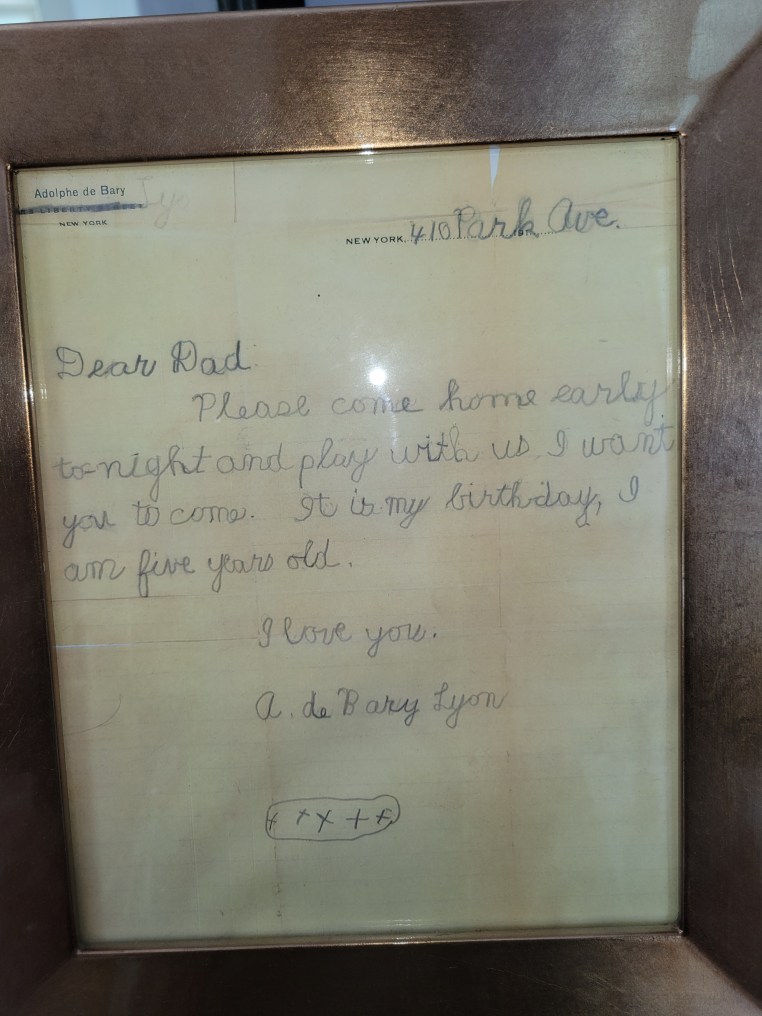 Adolphe de Bary Ly
NEW YORK
NEW YORK, 410 Park Ave.
Dear Dad.
Please come home early
to-night and play with us. I want
you to come. It is my birthday, I
am five years old.
I love you.
A. de Bary Lyon
+ + x + +